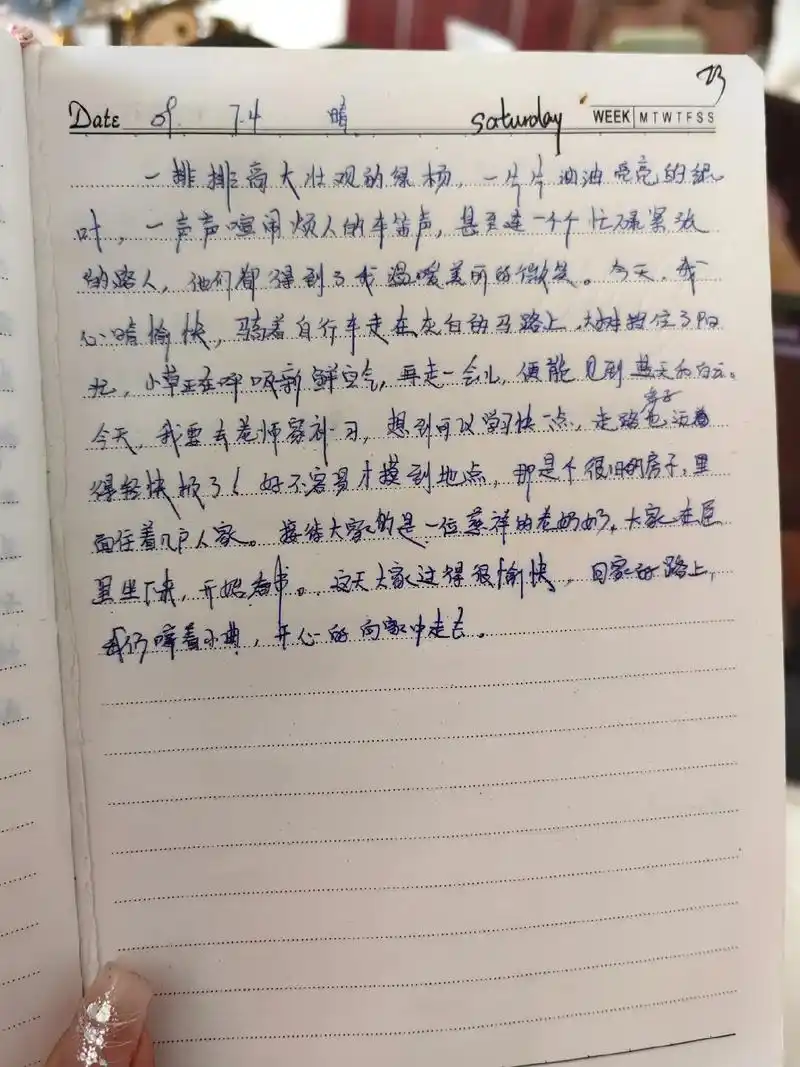 23
Date 09 7.4 晴 saturday WEEK M T W T F S S
一排排高大壮观的绿杨，一片片油油亮亮的绿
叶，一声声喧闹烦人的车笛声，甚至连一个个忙碌紧张
的路人，他们都得到了我温暖美丽的微笑。今天，我
心晴愉快，骑着自行车走在灰白的马路上，大树挡住了阳
光，小草正在呼吸新鲜空气，再走一会儿，便能见到蓝天和白云。
今天，我要去老师家补习，想到可以学习快一点，走路
得轻快极了！好不容易才摸到地点，那是个很旧的房子，里
面住着几户人家。接待大家的是一位慈祥的老奶奶，大家在屋
里坐下来，开始看书。这天大家过得很愉快，回家的路上，
我们哼着小曲，开心的向家中走去。